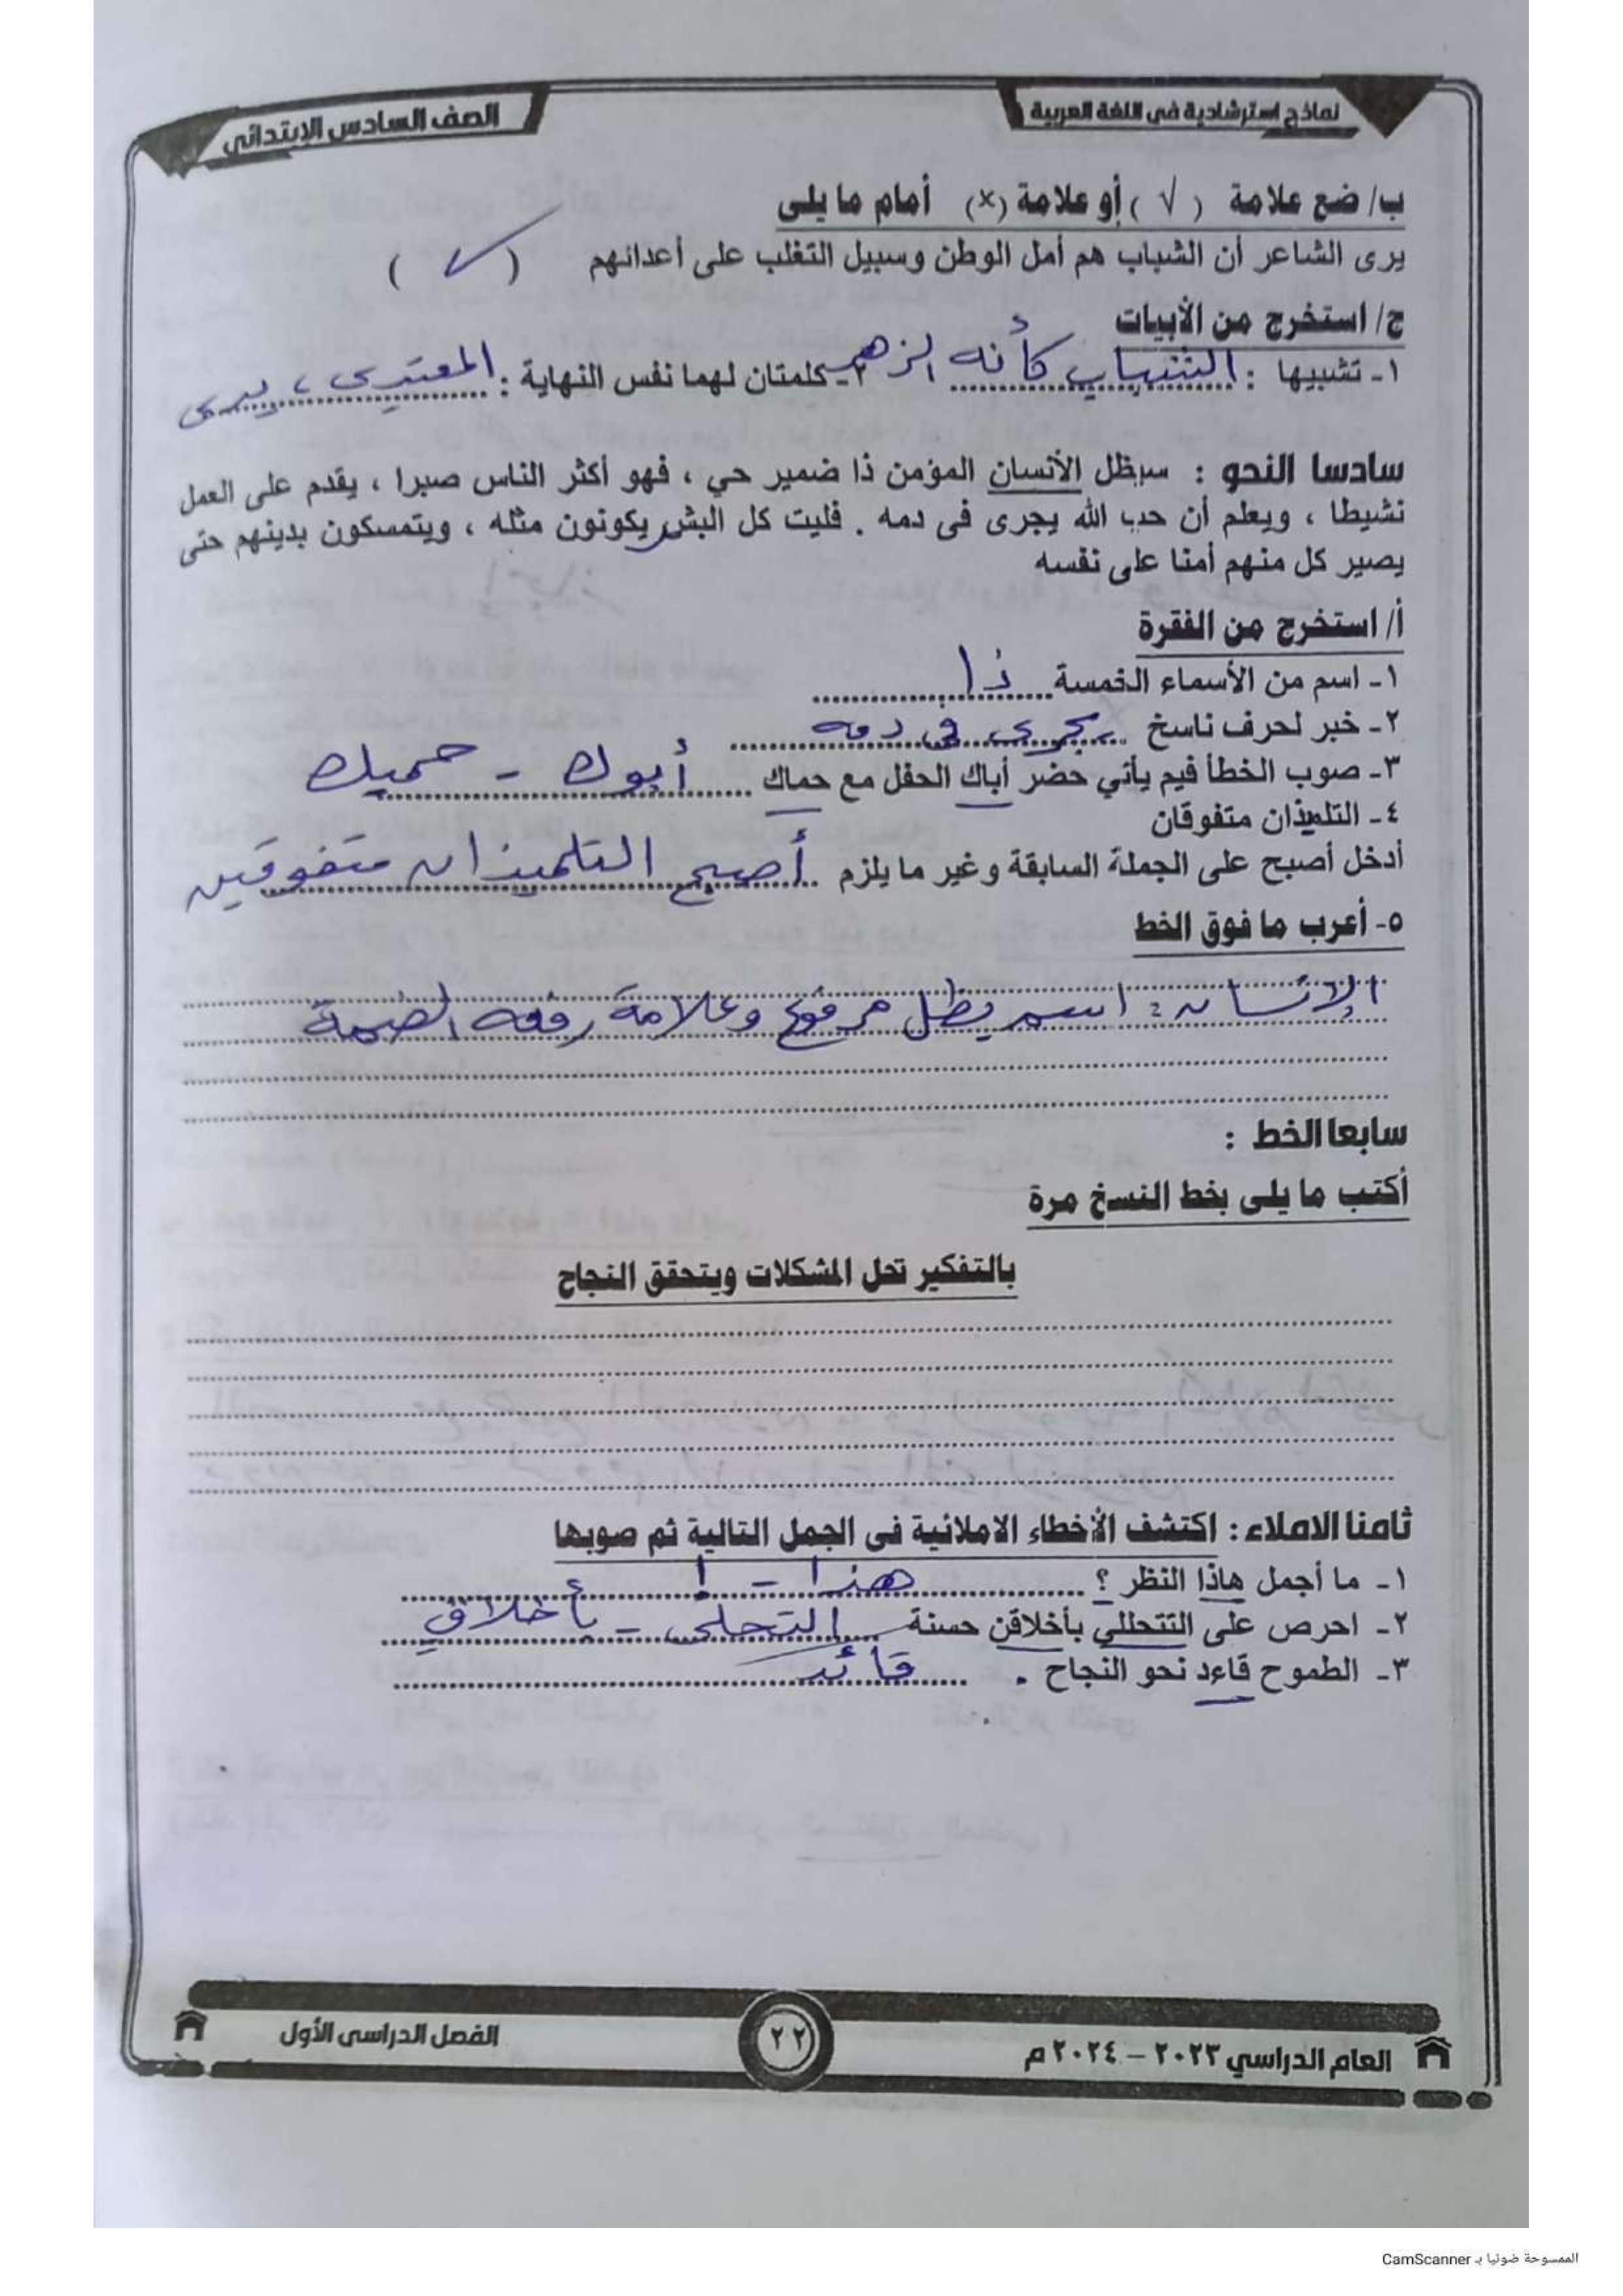 نماذج استرشادية فى اللغة العربية
الصف السادس الابتدائى
ب/ ضع علامة ( √ ) أو علامة (×) أمام ما يلى
يرى الشاعر أن الشباب هم أمل الوطن وسبيل التغلب على أعدائهم ( ✓ )
ج/ استخرج من الأبيات
١- تشبيها : الشباب كأنه الزهر ٢- كلمتان لهما نفس النهاية : المعتدى ، يدى
سادسا النحو : سيظل الأنسان المؤمن ذا ضمير حي ، فهو أكثر الناس صبرا ، يقدم على العمل
نشيطا ، ويعلم أن حب الله يجرى فى دمه . فليت كل البشر يكونون مثله ، ويتمسكون بدينهم حتى
يصير كل منهم أمنا على نفسه
أ/ استخرج من الفقرة
١- اسم من الأسماء الخمسة ذا
٢- خبر لحرف ناسخ يجرى فى دمه
٣- صوب الخطأ فيم يأتي حضر أباك الحفل مع حماك أبوك - حميك
٤- التلميذان متفوقان
أدخل أصبح على الجملة السابقة وغير ما يلزم أصبح التلميذان متفوقين
٥- أعرب ما فوق الخط
الإنسان : اسم يظل مرفوع وعلامة رفعه الضمة
سابعا الخط :
أكتب ما يلى بخط النسخ مرة
بالتفكير تحل المشكلات ويتحقق النجاح
ثامنا الاملاء : اكتشف الأخطاء الاملائية فى الجمل التالية ثم صوبها
١- ما أجمل هاذا النظر ؟ هذا - !
٢- احرص على التتحللي بأخلاقن حسنة التحلى - بأخلاقٍ
٣- الطموح قاءد نحو النجاح . قائد
العام الدراسي ٢٠٢٣ – ٢٠٢٤ م
٢٢
الفصل الدراسى الأول
الممسوحة ضوئيا بـ CamScanner